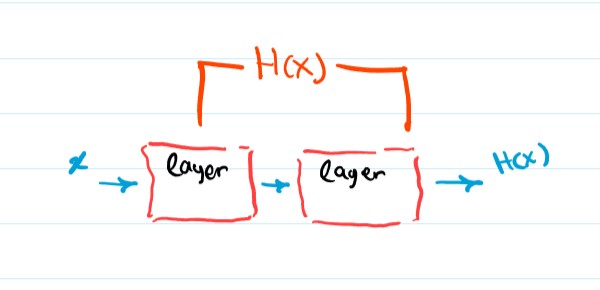 H(x)
x → layer → layer → H(x)